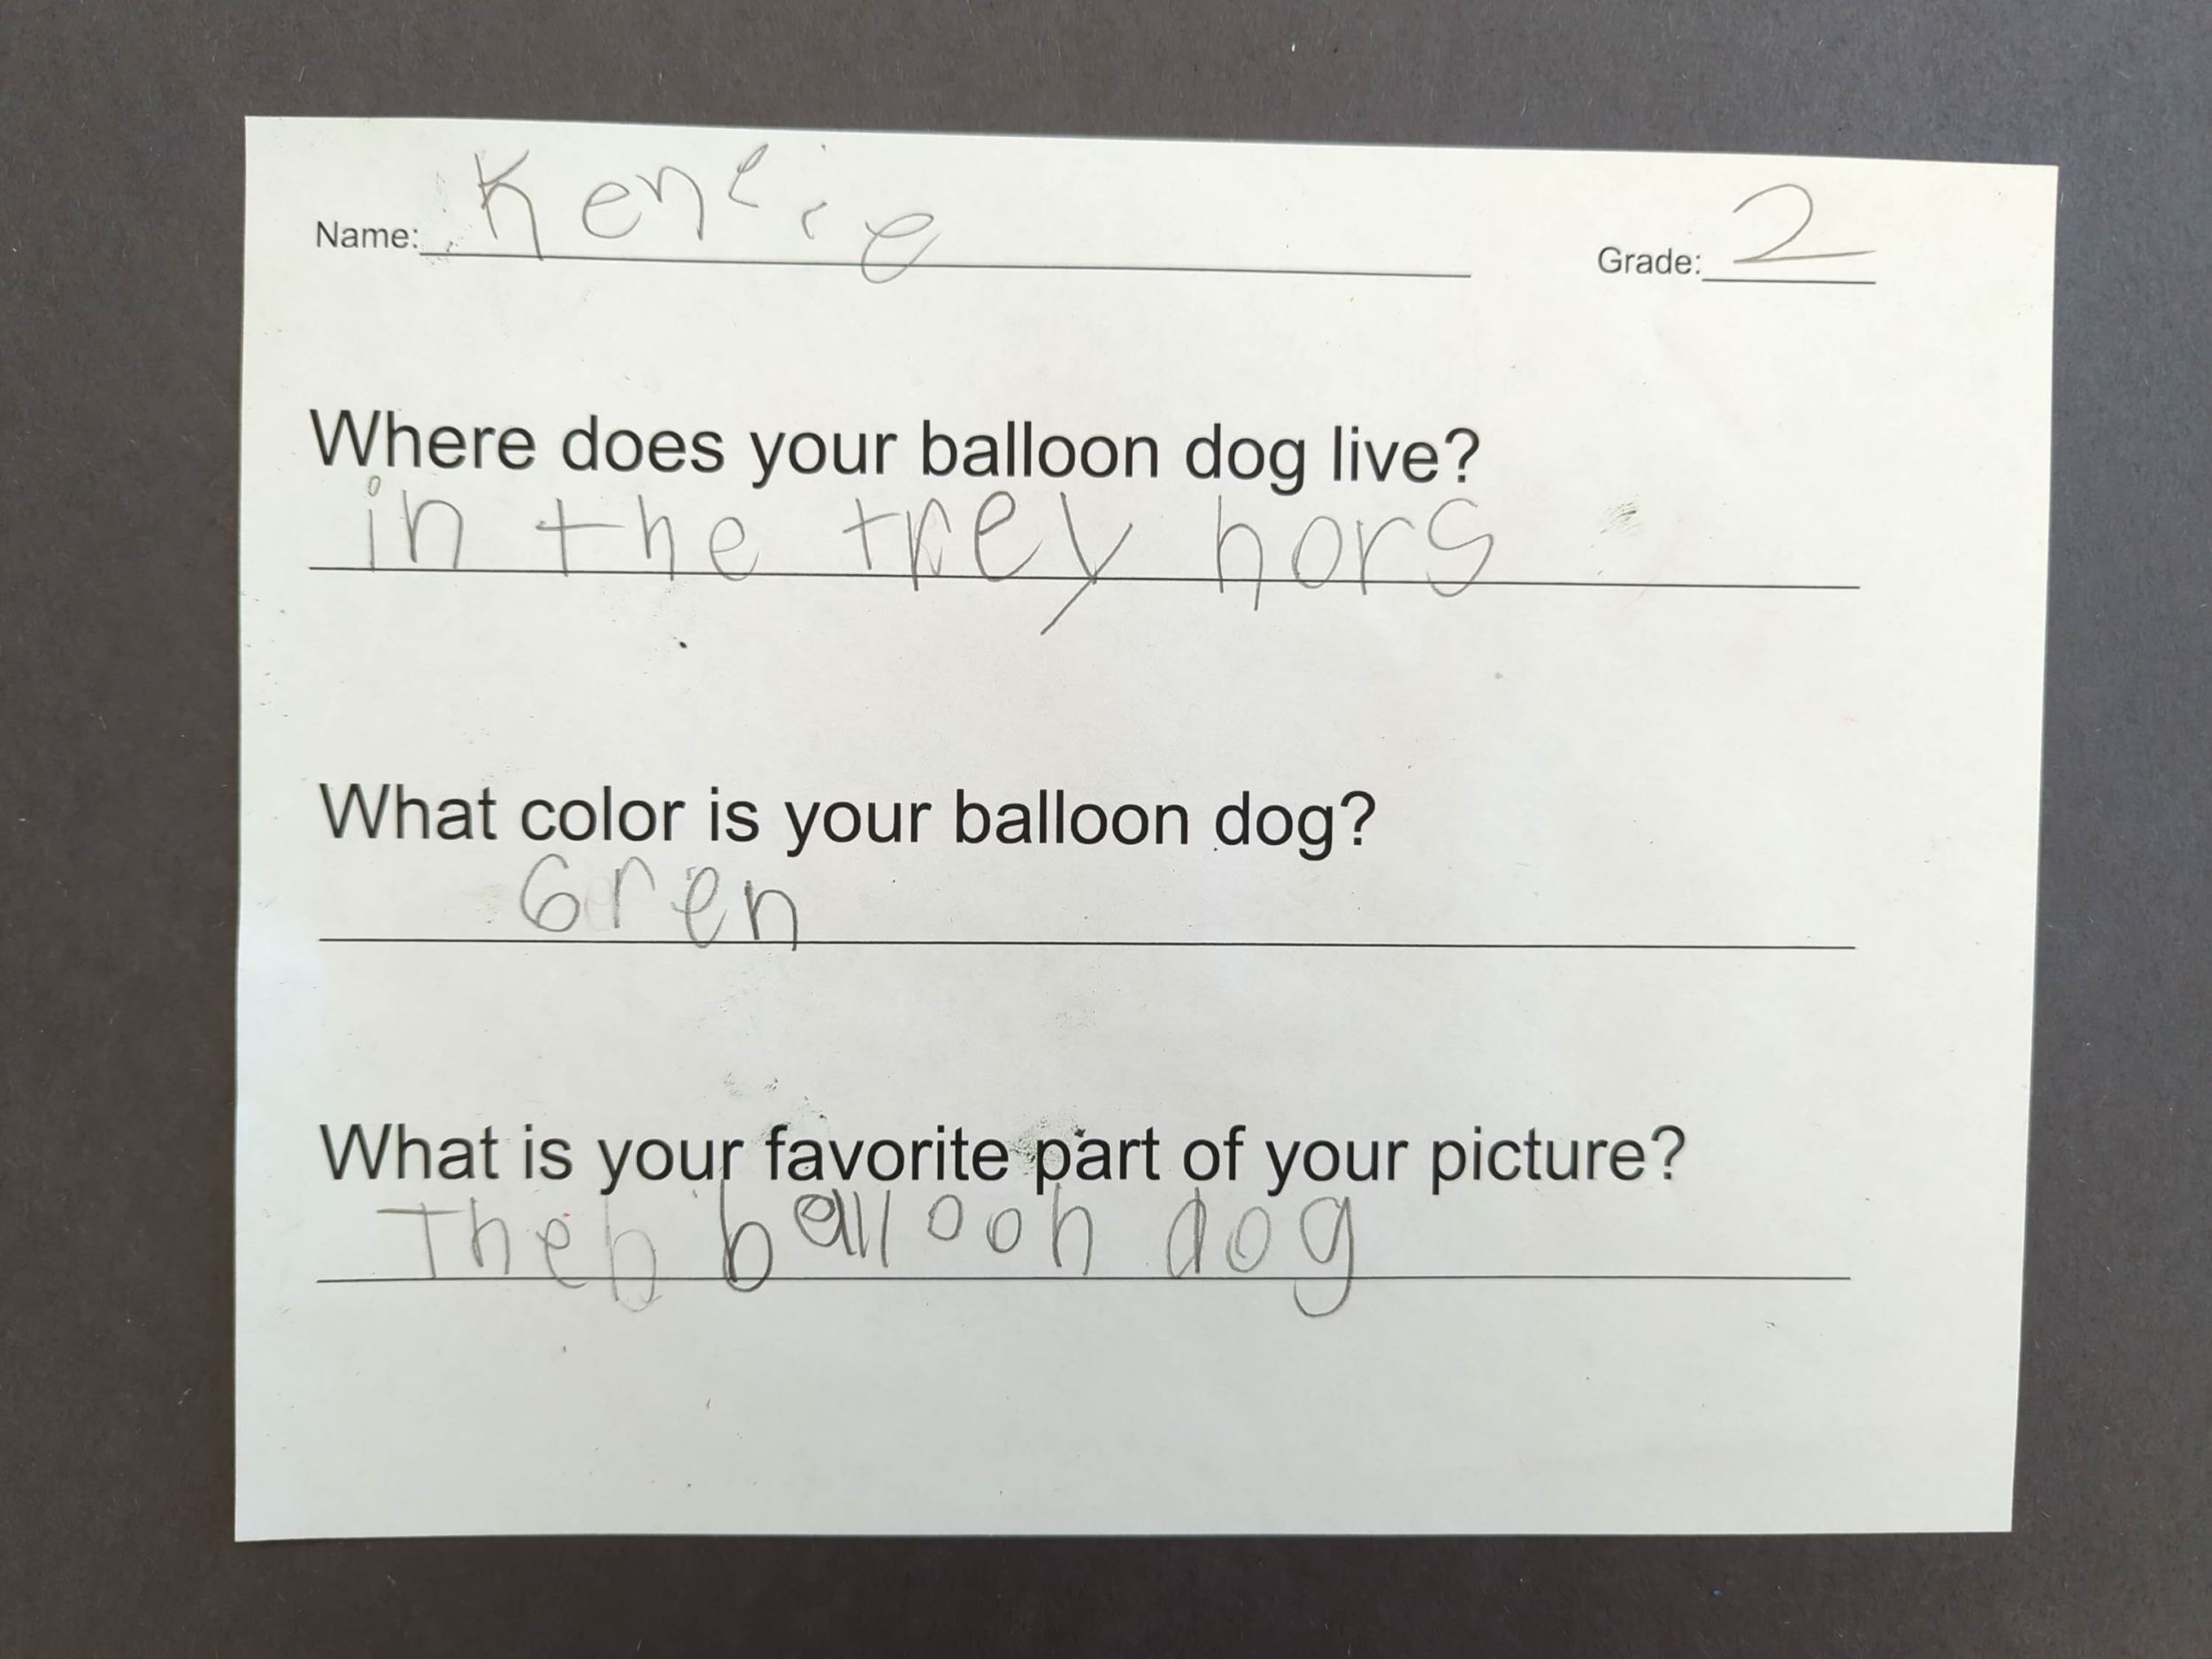 Name: Kenzie Grade: 2
Where does your balloon dog live?
in the trey hors
What color is your balloon dog?
Gren
What is your favorite part of your picture?
The balloon dog